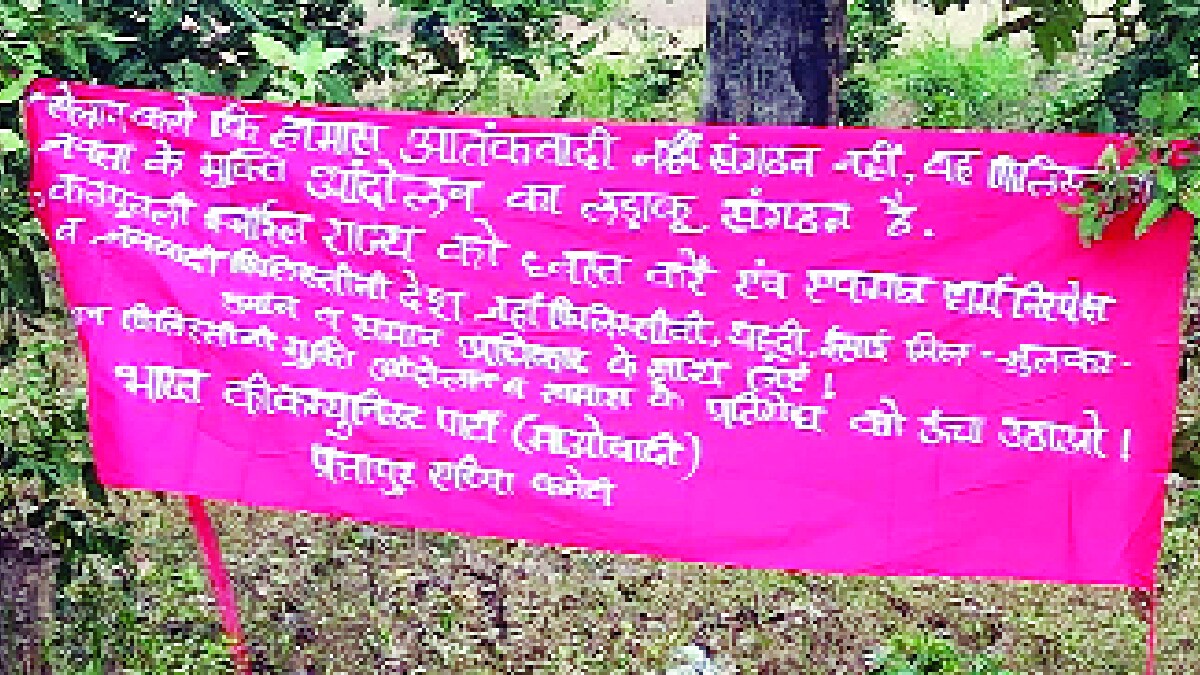 ऐलान करो कि हमास आतंकवादी नहीं संगठन नहीं, यह फिलिस्तीनी
जनता के मुक्ति आंदोलन का लड़ाकू संगठन है.
कठपुतली इजराइल राज्य को ध्वस्त करें एंव एकमात्र धर्म निरपेक्ष
व फिलिस्तीनी देश जहाँ फिलिस्तीनी, यहूदी, ईसाई मिल-जुलकर-
समान व समान अधिकार के साथ
फिलिस्तीनी मुक्ति आंदोलन व हमास के प्रतिरोध को ऊंचा उठाओ!
भारत की कम्युनिस्ट पार्टी (माओवादी)
प्रतापुर एरिया कमेटी